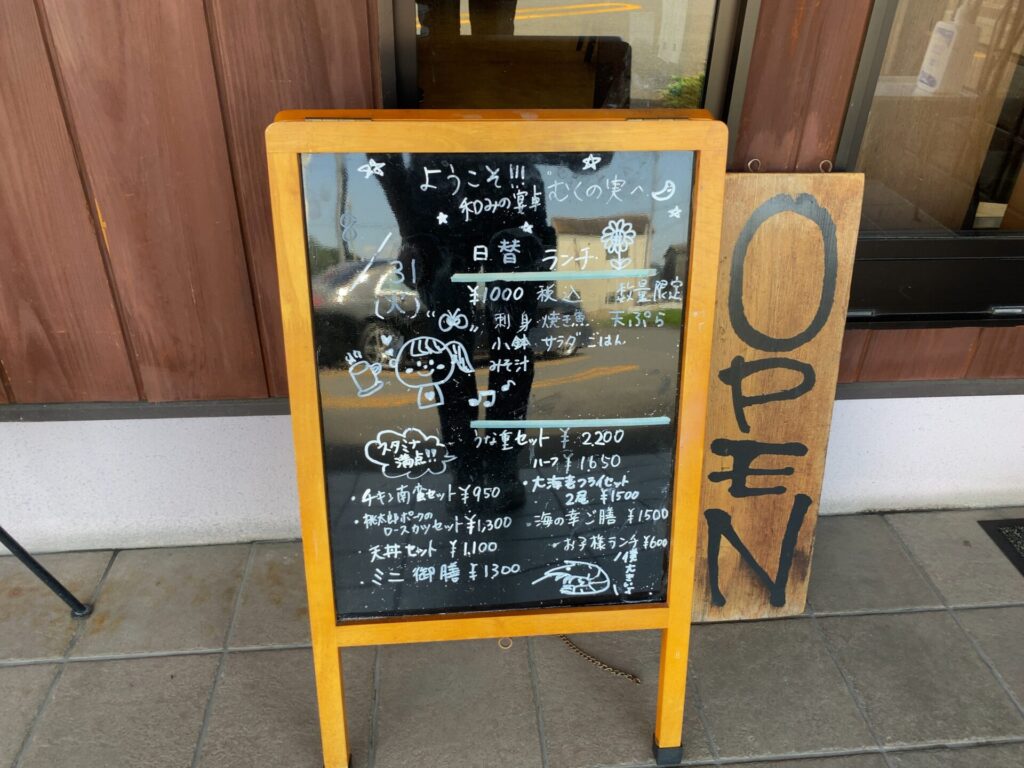 ようこそ!!!
和みの宴卓 むくの実へ
/31
(火)
日替 ランチ
¥1000 税込 数量限定
刺身 焼き魚 天ぷら
小鉢 サラダ ごはん
みそ汁
スタミナ
満点!!
うな重セット ¥2,200
ハーフ ¥1650
・大海老フライセット
2尾 ¥1500
海の幸ご膳 ¥1500
・お子様ランチ ¥600
・チキン南蛮セット ¥950
・桃太郎ポークの
ロースカツセット ¥1,300
天丼セット ¥1,100
・ミニ御膳 ¥1300
僕
大きいよ
OPEN